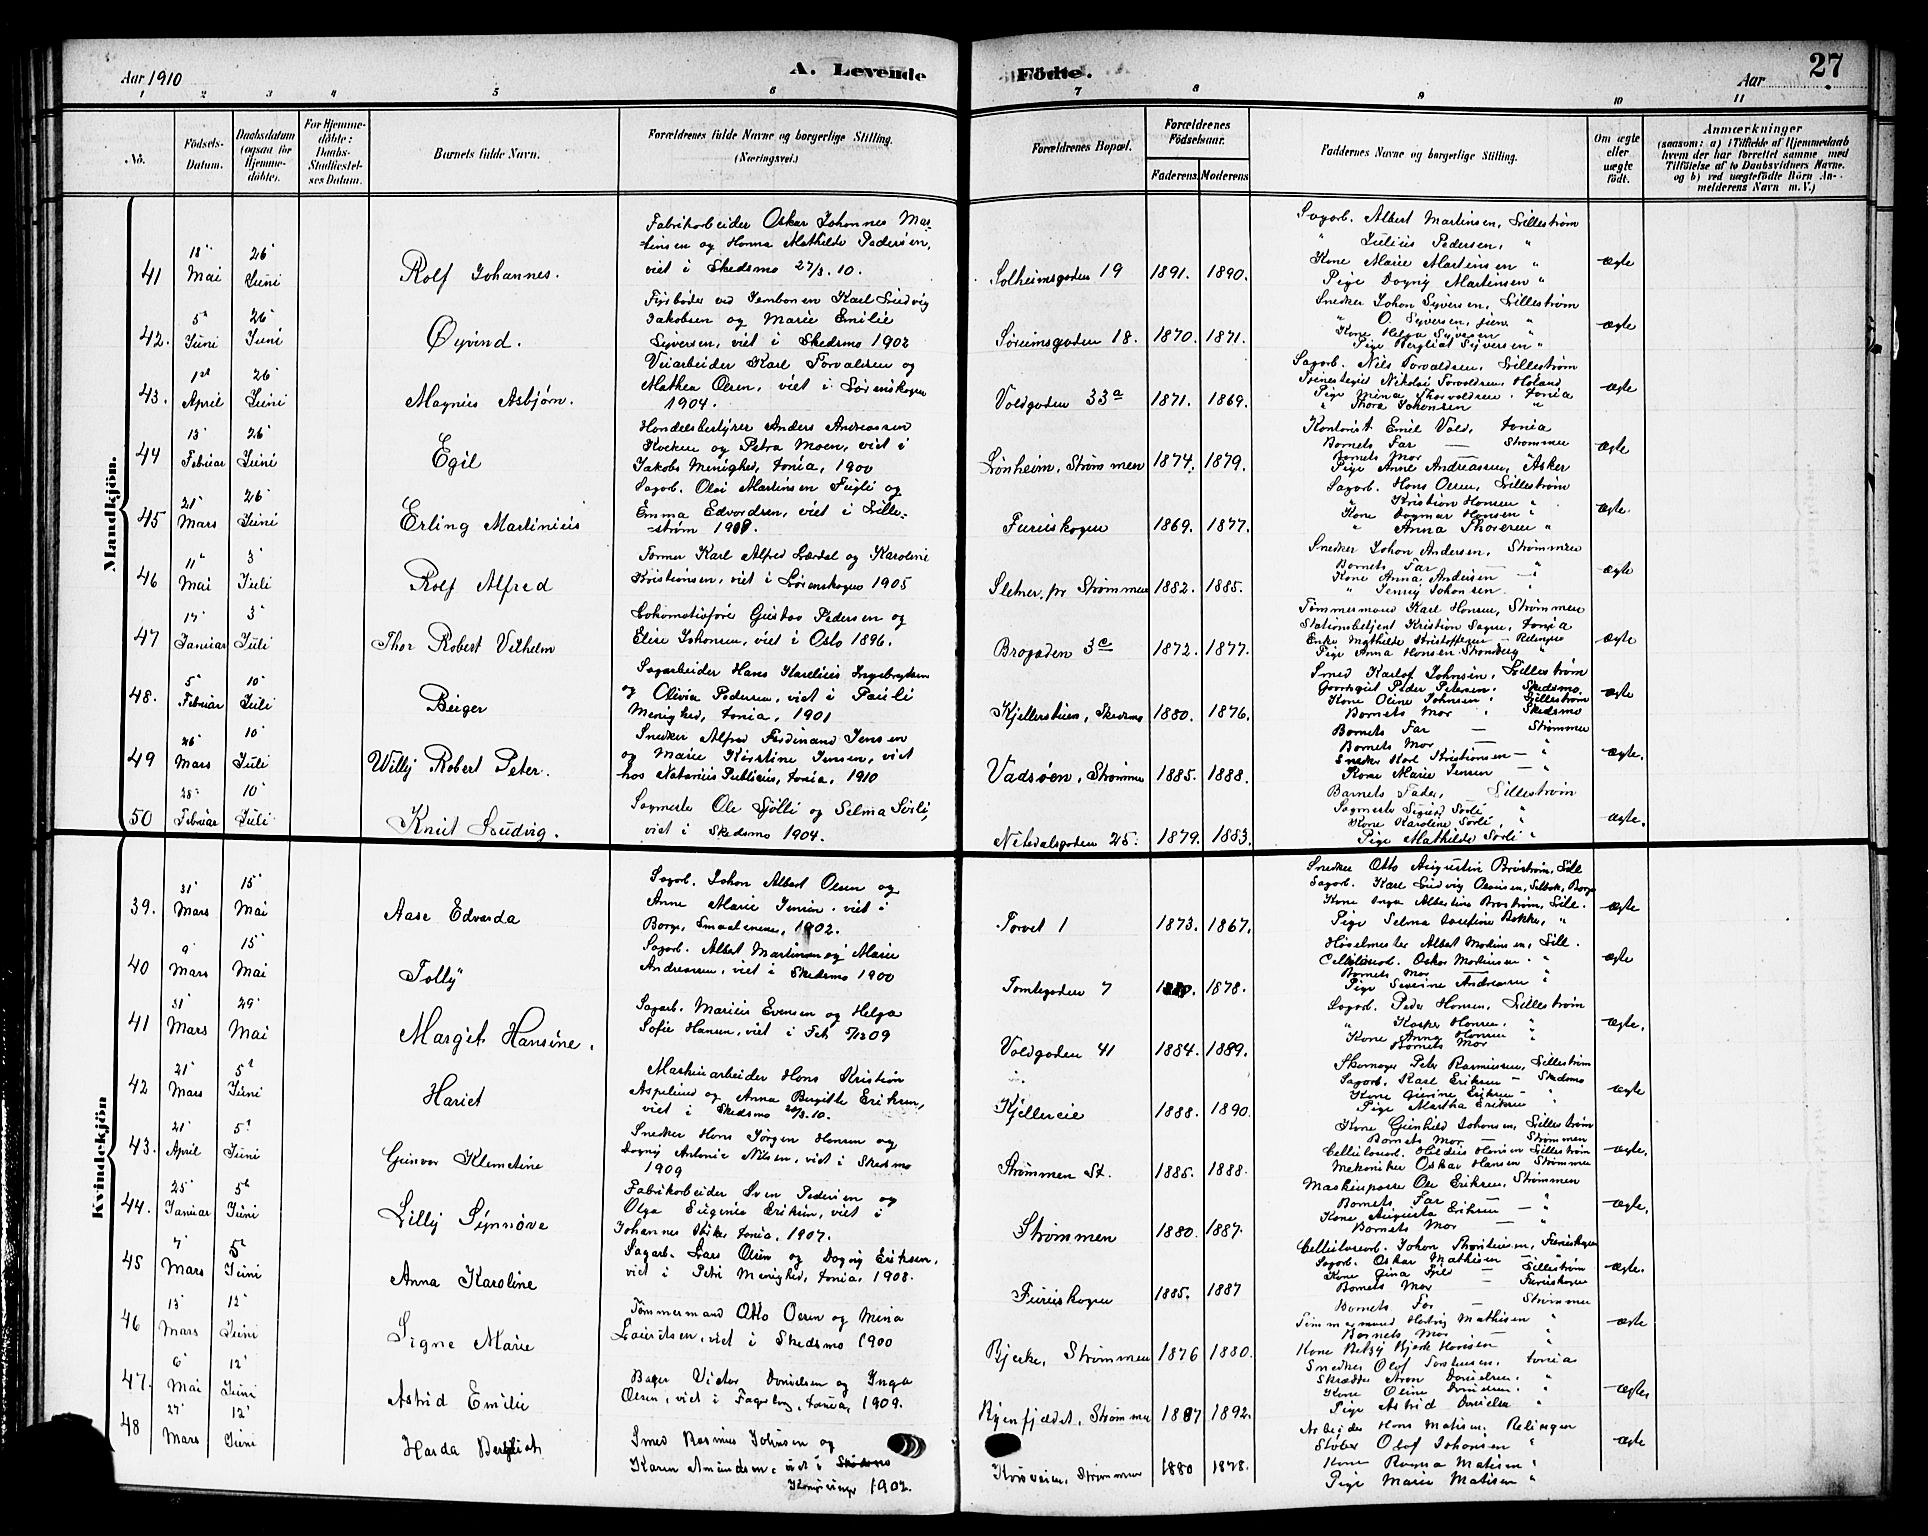 Aar 1910
A. Levende
Födte.
Aar
27
1 2 3 4 5 6 7 8 9 10 11
No.
Födsels-
Datum.
Daabsdatum
(ogsaa for
Hjemme-
döbte).
For Hjemme-
döbte:
Daabs-
Stadfæstel-
ses Datum.
Barnets fulde Navn.
Forældrenes fulde Navne og borgerlige Stilling.
(Næringsvei.)
Forældrenes Bopæl.
Forældrenes
Födselsaar.
Faderens. Moderens.
Faddernes Navne og borgerlige Stilling.
Om ægte
eller
uægte
født.
Anmærkninger
(saasom: a) i Tilfælde af Hjemmedaab
hvem der har forrettet samme med
Tilföielse af to Daabsvidners Navne,
og b) ved uægtefödte Börn An-
melderens Navn m. V.)
Mandkjön.
41 18 Mai 26 Juni Rolf Johannes.
Fabrikarbeider Oskar Johannes Mar-
tinsen og Hanna Mathilde Pedersen,
viet i Skedsmo 27/3. 10.
Solheimsgaden 19 1891. 1890.
Sagarb. Albert Martinsen, Lillestrøm
" Julius Pedersen, "
Kone Marie Martinsen "
Pige Dagny Martinsen "
ægte
42. 5 Juni 26 Juni Øyvind.
Fyrbøder ved Jernbanen Karl Ludvig
Jakobsen og Marie Emilie
Syversen, viet i Skedsmo 1902
Sørumsgaden 18. 1870. 1871.
Snedker Johan Syversen, Lillestrøm
" O. Syversen, jun. "
Kone Helga Syversen "
Pige Bergliot Syversen "
ægte
43. 1 April 26 Juni Magnus Asbjørn.
Veiarbeider Karl Torvaldsen og
Mathea Olsen, viet i Lørenskogen
1904.
Voldgaden 33a 1871. 1869.
Sagarb. Nils Torvaldsen, Lillestrøm
Nikolai Torvaldsen, Høland
Pige Mina Thorvaldsen, Xania
" Thora Johansen "
ægte
44 13 Februar 26 Juni Egil
Handelsbestyrer Anders Andreassen
og Petra Moen, viet i
Jakobs Menighed, Xania, 1900
Lønheim, Strømmen 1874. 1879.
Kontorist Emil Vold, Xania
Barnets Far — Strømmen
Barnets Mor
Pige Anne Andreassen, Asker
ægte
45 21 Mars 26 Juni Erling Martinius
Sagarb. Olai Martinsen Fugli og
Emma Edvardsen, viet i Lille-
strøm 1908.
Furuskogen 1869. 1877.
Sagarb. Hans Olsen, Lillestrøm
" Kristian Hansen "
Kone Dagmar Hansen "
" Anna Thoresen "
ægte.
46 11 Mai 3 Juli Rolf Alfred
Former Karl Alfred Lærdal og Karoline
Kristiansen, viet i Lørenskogen 1905
Sletner, pr Strømmen 1882. 1885.
Snedker Johan Andersen, Strømmen
Barnets Far — "
Kone Anna Andersen — "
" Jenny Johansen
ægte
47 17 Januar 3 Juli Thor Robert Vilhelm
Lokomotivfører Gustav Pedersen og
Elise Johansen, viet i Oslo 1896.
Brogaden 3c 1872. 1877.
Tømmermand Karl Hansen, Strømmen
Stationsbetjent Kristian Sagne, Xania
Enke Mathilde Kristoffersen — Relingen
Pige Anna Hansen Strandberg "
ægte
48. 5 Februar 10 Juli Beiger
Sagarbeider Hans Karelius Ingebrigtsen
og Olivia Pedersen, viet i Pauli
Menighed, Xania, 1901
Kjellerstuen, Skedsmo 1880. 1876.
Smed Karlof Johnsen, Lillestrøm
Gaardsgut Peder Petersen, Skedsmo
Kone Oline Johnsen, Lillestrøm
Barnets Mor " Skedsmo
ægte
49 26 Mars 10 Juli Willy Robert Peter.
Snedker Alfred Ferdinand Jensen
og Marie Kristine Jensen, viet
hos Notarius Publicus, Xania, 1910
Vadsøen, Strømmen 1885. 1888.
Barnets Far — Strømmen
Barnets Mor — "
Snedker Karl Kristiansen — "
Kone Marie Jensen — "
ægte.
50 28 Februar 10 Juli Knut Ludvig.
Sagmester Ole Sjølli og Selma Sørli,
viet i Skedsmo 1904.
Nitedalsgaden 25. 1879. 1883.
Barnets Fader, Lillestrøm
Sagmester Sigurd Sørli "
Kone Karoline Sørli, "
Pige Mathilde Sørli "
ægte.
Kvindekjön
39. 31 Mars 15 Mai Aase Edvarda
Sagarb. Johan Albert Olsen og
Anne Marie Jensen, viet i
Borge, Smaalenene, 1902.
Torvet 1 1873. 1867.
Snedker Otto Augustin Brostrøm, Lill
Sagarb. Karl Ludvig Olausen, Selbak, Borge
Kone Inga Albertine Brostrøm, Lill.
Pige Selma Josefine Bakke, "
ægte
40 9 Mars 15 Mai Tolly
Sagarb. Albert Martinsen og Marie
Andreassen, viet i Skedsmo 1900
Tomtegaden 7 1878.
Høvelmester Albert Martinsen, Lill.
Cellulosearb. Oskar Martinsen "
Barnets Mor — "
Pige Severine Andreassen "
ægte
41 31 Mars 29 Mai Margit Hansine.
Sagarb. Marius Evensen og Helga
Sofie Hansen, viet i Fet 5/12 09
Voldgaden 41 1884. 1889.
Sagarb. Peder Hansen, Lillestrøm
" Kasper Hansen, "
Kone Anna Hansen "
Barnets Mor
ægte.
42 21 Mars 5 Juni Hariet
Maskinarbeider Hans Kristian
Aspelund og Anna Bergitte Eriksen,
viet i Skedsmo 20/3. 10.
Kjellereie 1888. 1890.
Skomager Peter Rasmussen, Lillestrøm
Sagarb. Karl Eriksen — Skedsmo
Kone Gurine Eriksen — "
Pige Martha Eriksen "
ægte
43. 21 April 5 Juni Gunvor Klemetine
Snedker Hans Jørgen Hansen og
Dagny Antonie Nilsen, viet i Skedsmo
1909
Strømmen St. 1885. 1888.
Kone Gunhild Johansen, Lillestrøm
Barnets Mor — Strømmen
Cellulosearb. Hildus Hansen Lillestrøm
Mekaniker Oskar Hansen Strømmen
ægte.
44. 25 Januar 5 Juni Lilly Synnøve
Fabrikarbeider Sven Pedersen og
Olga Eugenie Eriksen, viet i
Johannes Kirke Xania, 1907.
Strømmen 1880. 1887.
Maskinpasser Ole Eriksen, Strømmen
Barnets Far — "
Kone Augusta Eriksen — "
Barnets Mor — "
ægte.
45 7 Mars 5 Juni Anna Karoline
Sagarb. Lars Olsen og Dagny Eriksen,
viet i Petri Menighed, Xania, 1908.
Furuskogen 1885. 1887
Cellulosearb. Johan Furuskogen
Sagarb. Oskar Mathisen "
Kone Gina — Lillestrøm
Barnets Mor — Furuskogen
ægte.
46 13 Mars 12 Juni Signe Marie
Tømmermand Otto Olsen og Mina
Lauritsen, viet i Skedsmo 1900
Bjerke, Strømmen 1876 1880.
Barnets Far — Strømmen
Tømmermand Hartvig Mathisen "
Barnets Mor — "
Kone Betzy Bjerk Hansen "
ægte
47. 6 Mai 12 Juni Astrid Emilie
Bager Victor Danielsen og Inga
Olsen, viet i Fagerborg, Xania, 1909.
Strømmen 1887 1892.
Snedker Olof Torstensen, Xania
Skrædder Aron Danielsen, "
Kone Oline Danielsen, "
Pige Astrid Danielsen "
ægte.
48 27 Mars 12 Juni Harda Bergliot
Smed Rasmus Johnsen og
Karen Amundsen, viet i Skedsmo
Kongsvinger 1902.
Korsveien, Strømmen 1880 1878.
Arbeider Hans Matisen, Relingen
Støber Olof Johansen "
Kone Ragna Matisen "
Pige Marie Matisen "
ægte